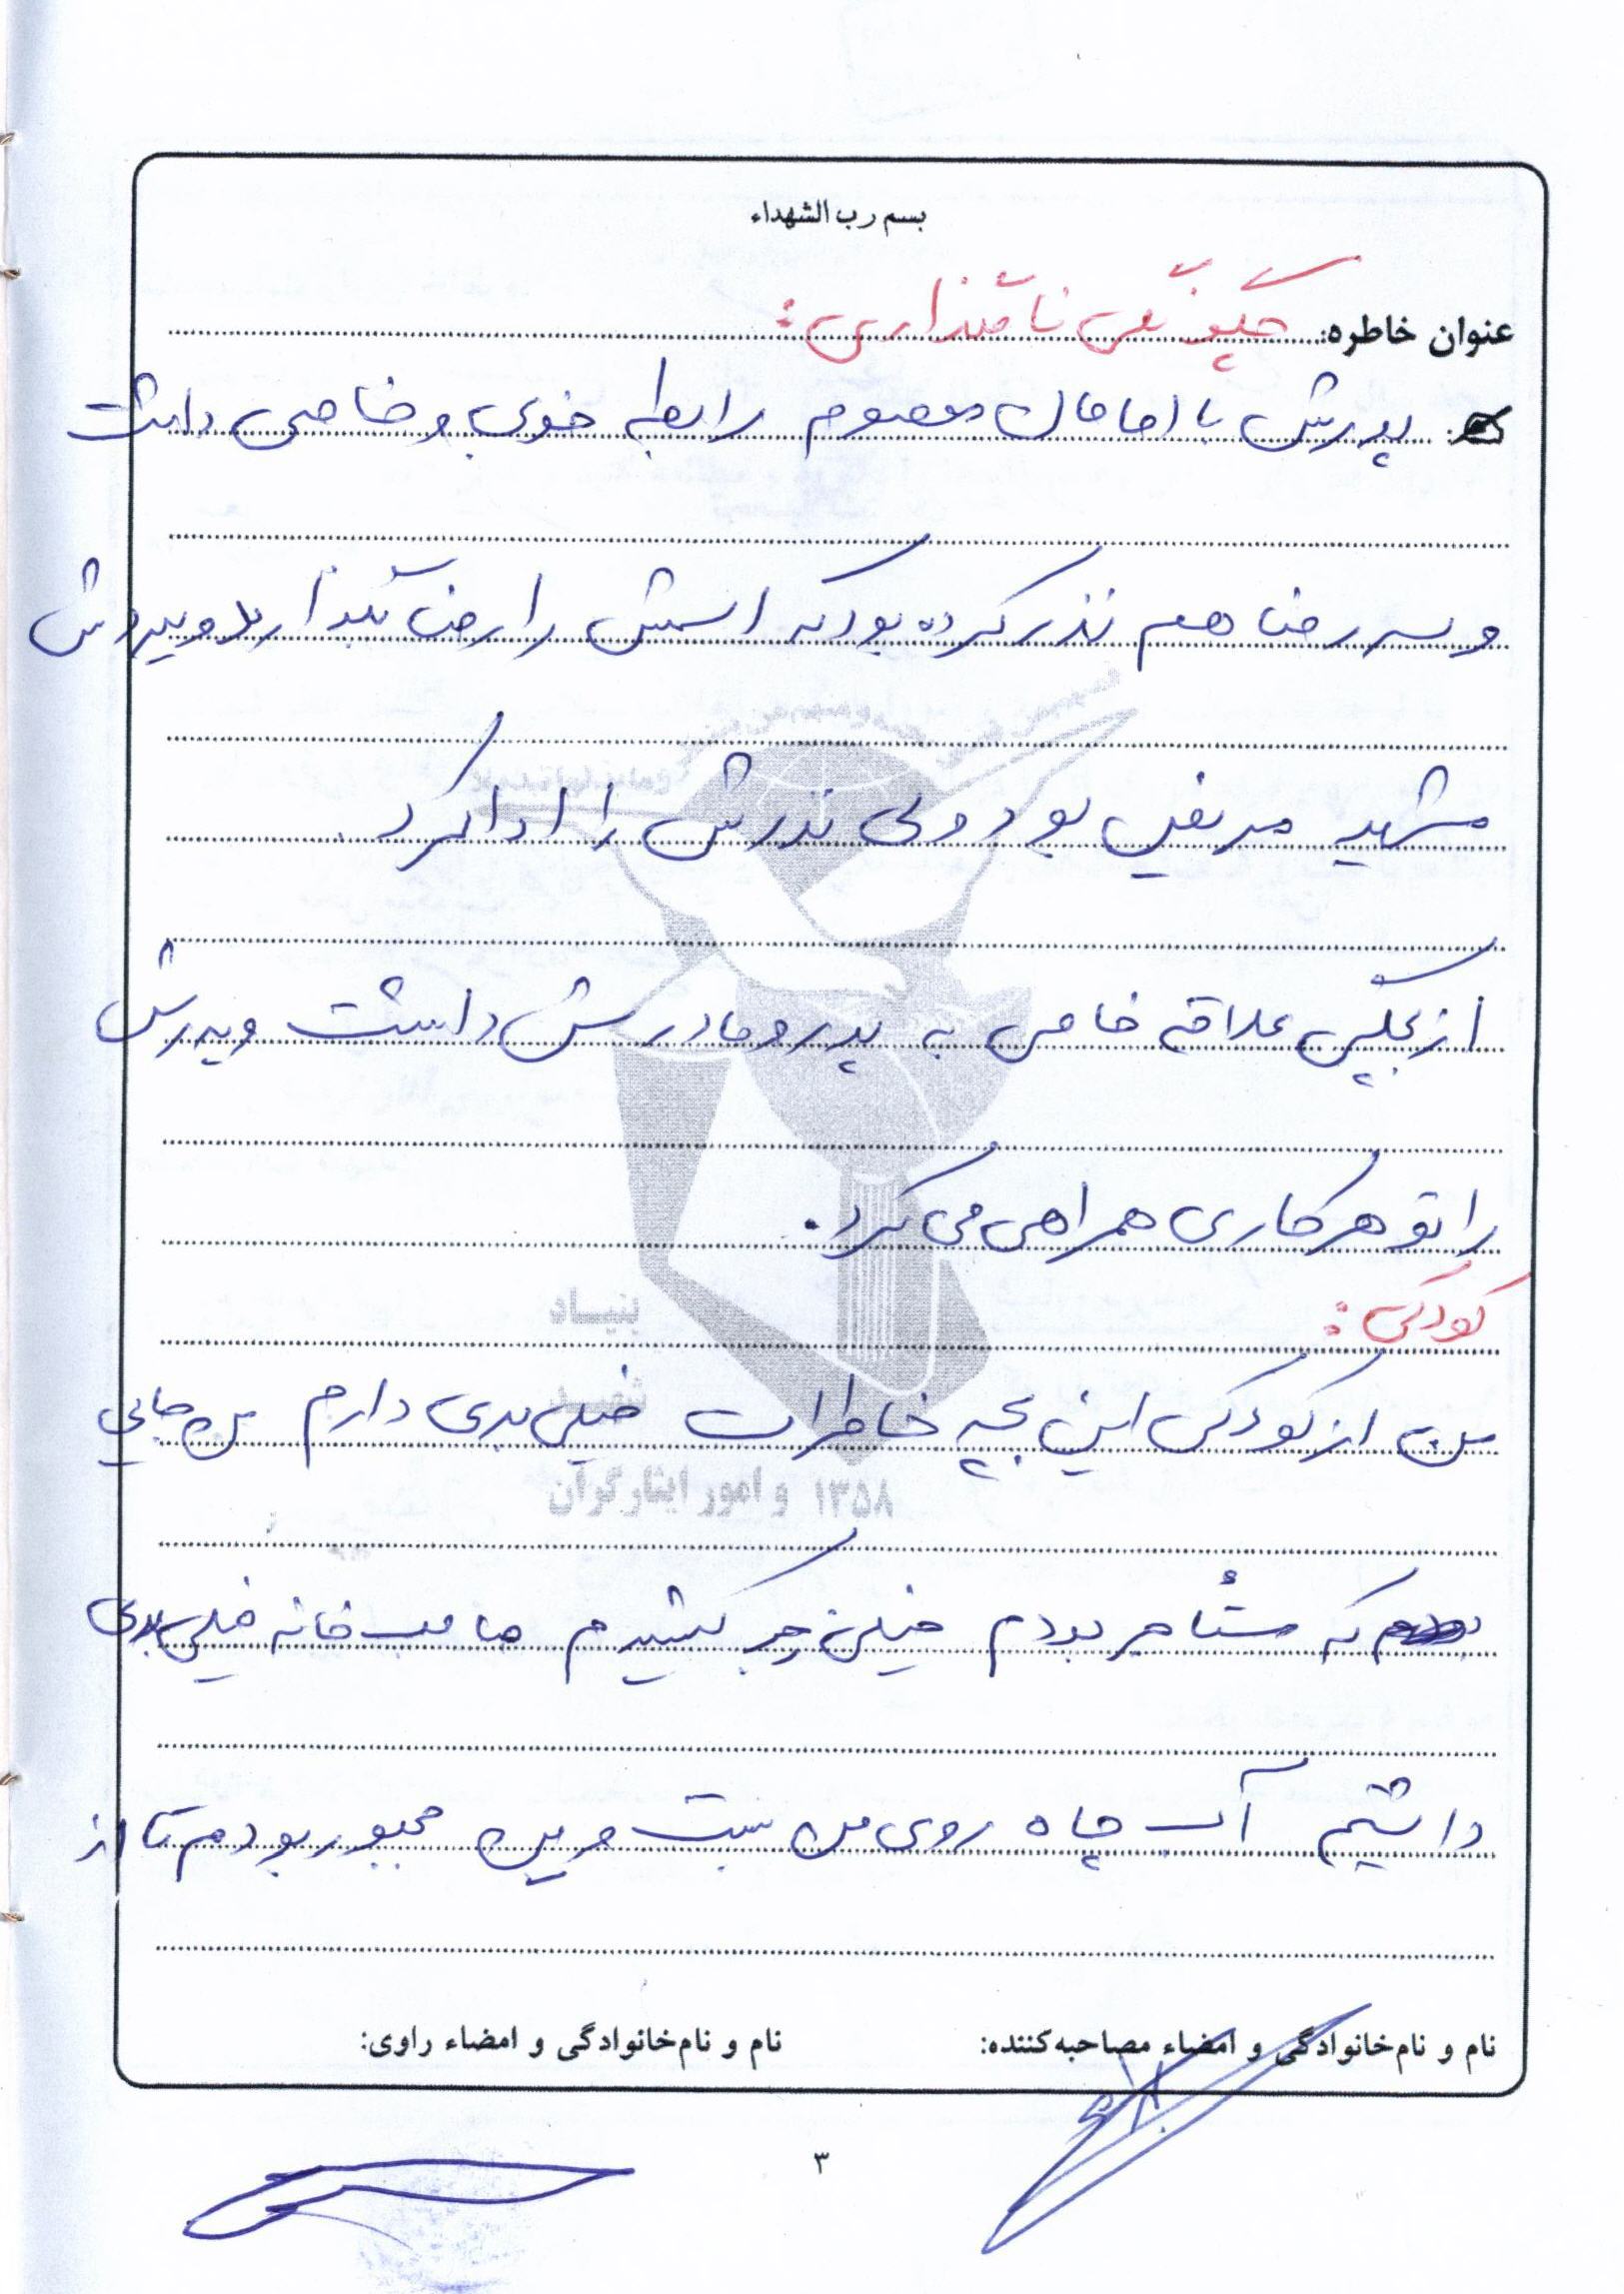 بسم رب الشهداء
عنوان خاطره: چگونگی نامگذاری:
پدرش با امامان معصوم رابطه خوبی و خاصی داشت
و سر رضا هم نذر کرده بود که اسمش را رضا بگذارد و پدرش
مشهد مریض بود ولی نذرش را ادا کرد.
از بچگی علاقه خاصی به پدر و مادرش داشت و پدرش
را تو هر کاری همراهی می کرد.
کودکی:
من از کودکی این بچه خاطرات خیلی بدی دارم من جایی
که مستأجر بودم خیلی زجر کشیدم صاحب خانه خیلی بدی
داشتیم آب چاه روی من بست و من مجبور بودم تا از
بنیاد
شهید
۱۳۵۸ و امور ایثارگران
نام و نام‌خانوادگی و امضاء مصاحبه‌کننده:
نام و نام‌خانوادگی و امضاء راوی:
۳